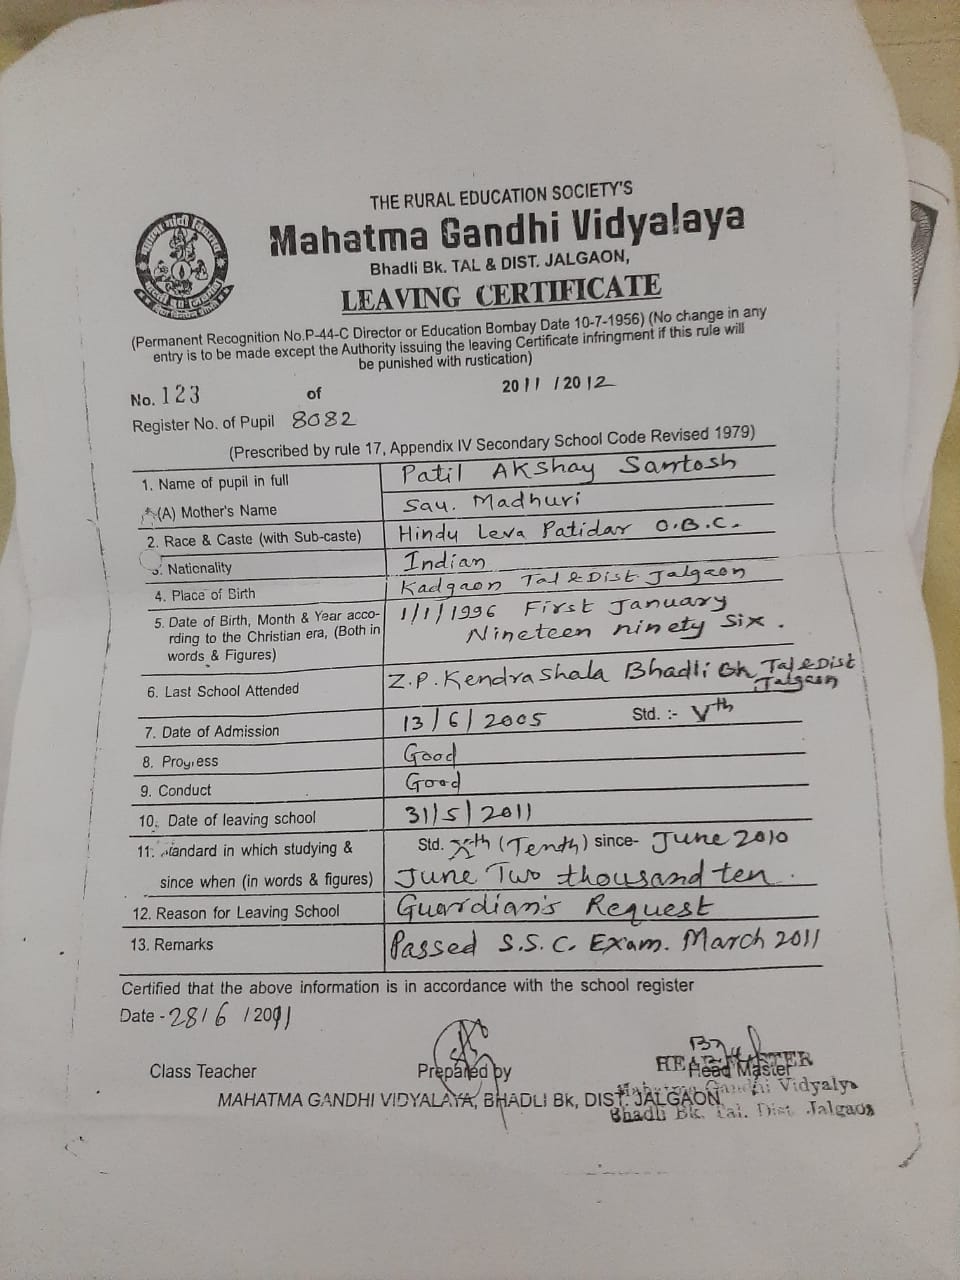 THE RURAL EDUCATION SOCIETY'S
Mahatma Gandhi Vidyalaya
Bhadli Bk. TAL & DIST. JALGAON,
LEAVING CERTIFICATE
(Permanent Recognition No.P-44-C Director or Education Bombay Date 10-7-1956) (No change in any
entry is to be made except the Authority issuing the leaving Certificate infringment if this rule will
be punished with rustication)
No. 123 of 2011 / 2012
Register No. of Pupil 8082
(Prescribed by rule 17, Appendix IV Secondary School Code Revised 1979)
1. Name of pupil in full Patil Akshay Santosh
(A) Mother's Name Sau. Madhuri
2. Race & Caste (with Sub-caste) Hindu Leva Patidar O.B.C.
3. Nationality Indian
4. Place of Birth Kadgaon Tal & Dist. Jalgaon
5. Date of Birth, Month & Year acco- 1/1/1996 First January
rding to the Christian era, (Both in Nineteen ninety Six.
words & Figures)
6. Last School Attended Z.P. Kendrashala Bhadli Bk Tal & Dist
Jalgaon
7. Date of Admission 13/6/2005 Std. :- Vth
8. Progress Good
9. Conduct Good
10. Date of leaving school 31/5/2011
11. Standard in which studying & Std. Xth (Tenth) since- June 2010
since when (in words & figures) June Two thousand ten.
12. Reason for Leaving School Guardian's Request
13. Remarks Passed S.S.C. Exam. March 2011
Certified that the above information is in accordance with the school register
Date - 28/6 /2011
Class Teacher Prepared by Head Master
HEAD MASTER
MAHATMA GANDHI VIDYALAYA, BHADLI Bk, DIST. JALGAON
Mahatma Gandhi Vidyalya
Bhadli Bk. Tal. Dist. Jalgaon